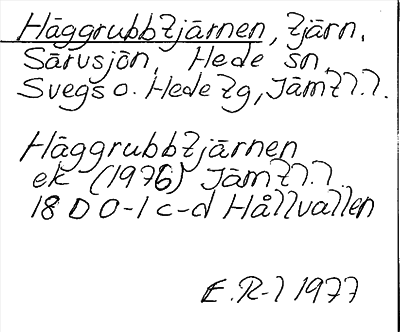 Häggrubbtjärnen, tjärn,
Särvsjön, Hede sn,
Svegs o. Hede tg, Jämtl.l.
Häggrubbtjärnen
ek (1976) Jämtl.l.
18 D 0-1 c-d Hållvallen
E.R-l 1977